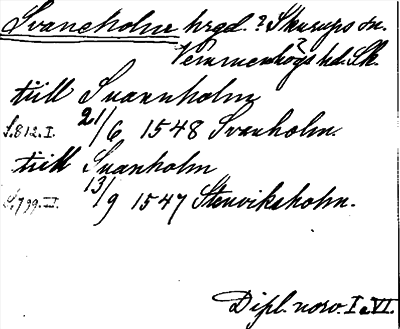 Svaneholm hrgd. ? Skurups sn.
Vemmenhögs hd. Sk.
till Suannholm
S.812.I. 21/6 1548 Svanholm.
till Suanholm
S.799.III. 13/9 1547 Stenviksholm.
Dipl. norv. I a VI.